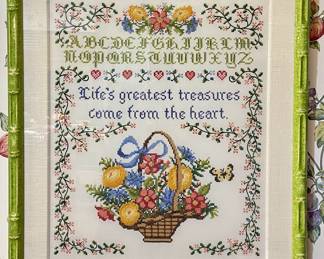 ABCDEFGHIJKLM
NOPQRSTUVWXYZ
Life's greatest treasures
come from the heart.